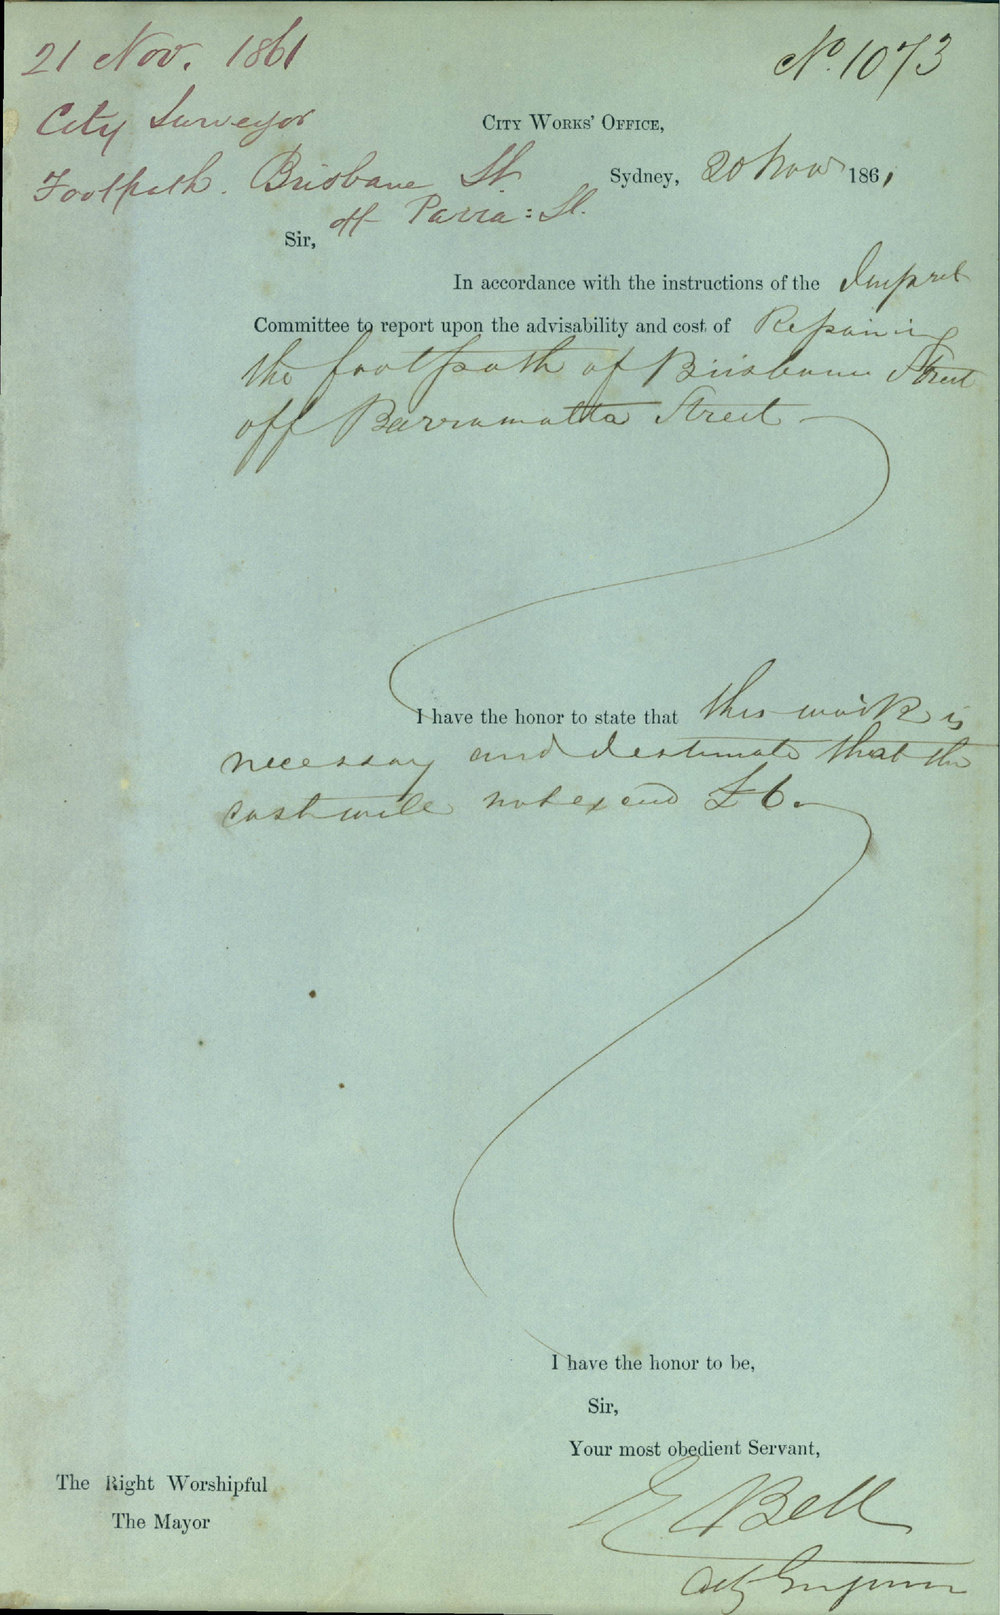 21 Nov. 1861
No. 1073
City Surveyor
CITY WORKS' OFFICE,
Footpath. Brisbane St
off Parra: St.
Sydney, 20 Nov 1861
Sir,
In accordance with the instructions of the Improvt
Committee to report upon the advisability and cost of Repairing
the footpath of Brisbane Street
off Parramatta Street
I have the honor to state that this work is
necessary and I estimate that the
cost will not exceed £6.
I have the honor to be,
Sir,
Your most obedient Servant,
The Right Worshipful
The Mayor
E Bell
City Engineer